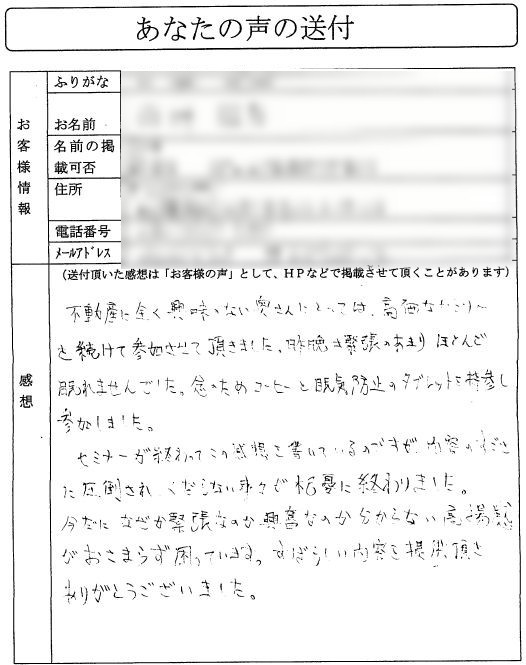 あなたの声の送付
お客様情報
ふりがな
お名前
名前の掲
載可否
住所
電話番号
メールアドレス
感想
(送付頂いた感想は「お客様の声」として、HPなどで掲載させて頂くことがあります)
不動産に全く興味のない奥さんにとっては、高価な
を続けて参加させて頂きました。昨晩は緊張のあまりほとんど
眠れませんでした。念のためコーヒーと眠気防止のタブレットを持参し
参加しました。
セミナーが終わってこの感想を書いているのですが、内容の
に圧倒され、くだらない 杞憂に終わりました。
今だになぜか緊張なのか興奮なのか分からない高揚感
がおさまらず困っています。すばらしい内容を提供頂き
ありがとうございました。